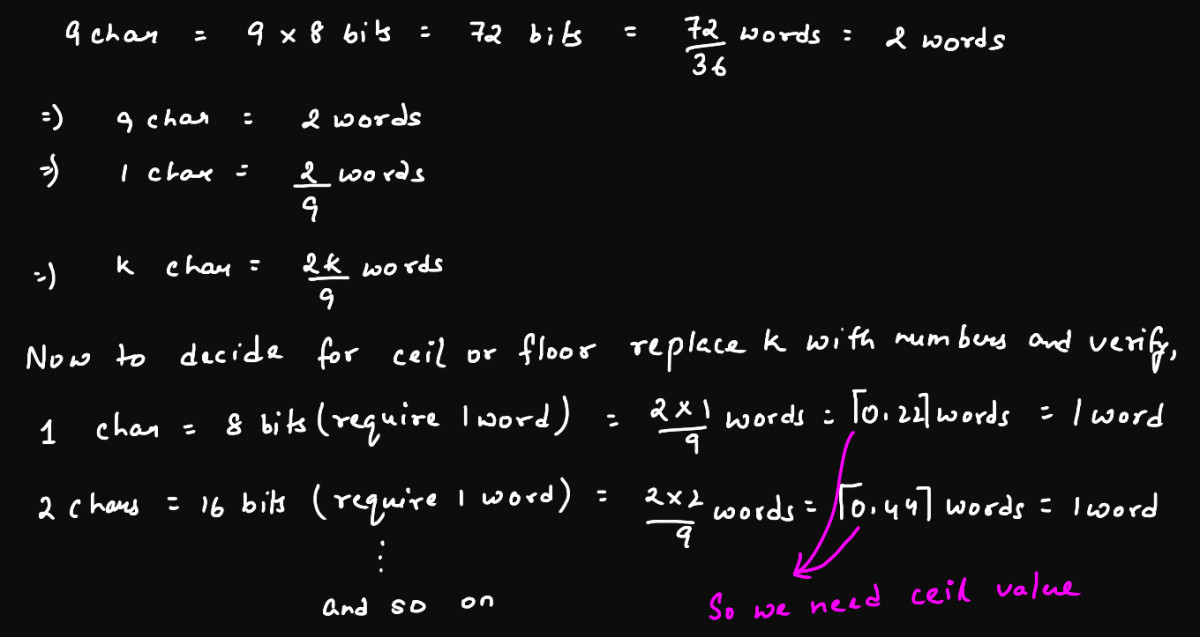 9 char = 9 x 8 bits = 72 bits = 72/36 words = 2 words
=) 9 char = 2 words
=) 1 char = 2/9 words
=) k char = 2k/9 words
Now to decide for ceil or floor replace k with numbers and verify,
1 char = 8 bits (require 1 word) = 2x1/9 words = ⌈0.22⌉ words = 1 word
2 chars = 16 bits (require 1 word) = 2x2/9 words = ⌈0.44⌉ words = 1 word
⋮
and so on
So we need ceil value